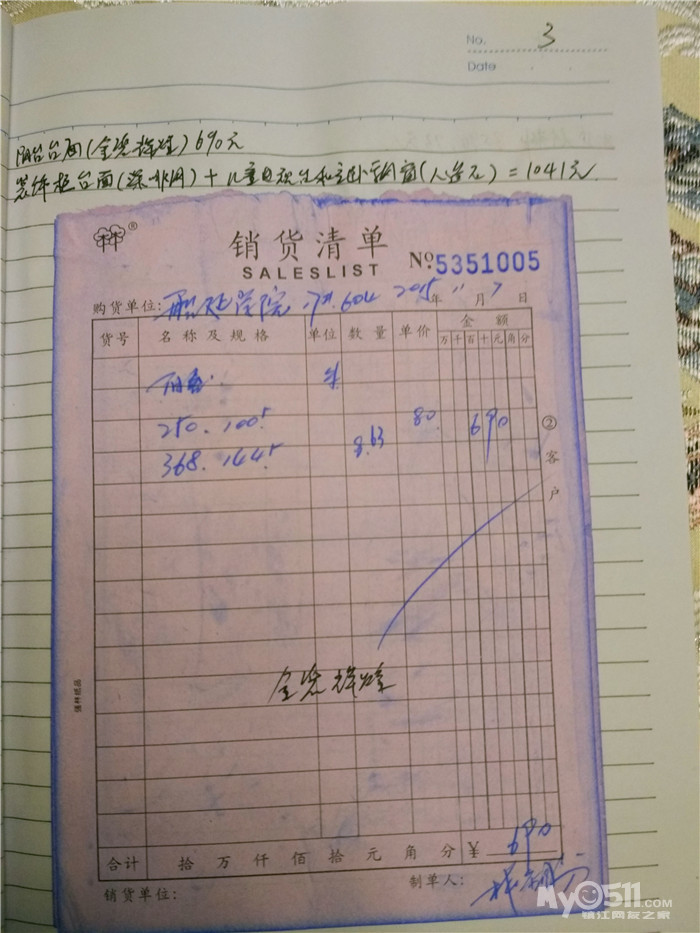 No. 3
Date
阳台台面(金宪辉煌)690元
装饰柜台面(深啡网)+儿童电视台和主卧飘窗(人造石)=1041元
®
销货清单
SALESLIST
No: 5351005
购货单位: 学院 604 2015年11月7日
货号 名称及规格 单位 数量 单价 金额
万千百十元角分
阳台
250.100.5
80 690
368.144.5 8.63
②客户
辉煌
合计 拾万仟佰拾元角分 ¥ 690
销货单位: 制单人:
My0511.COM
镇江网友之家